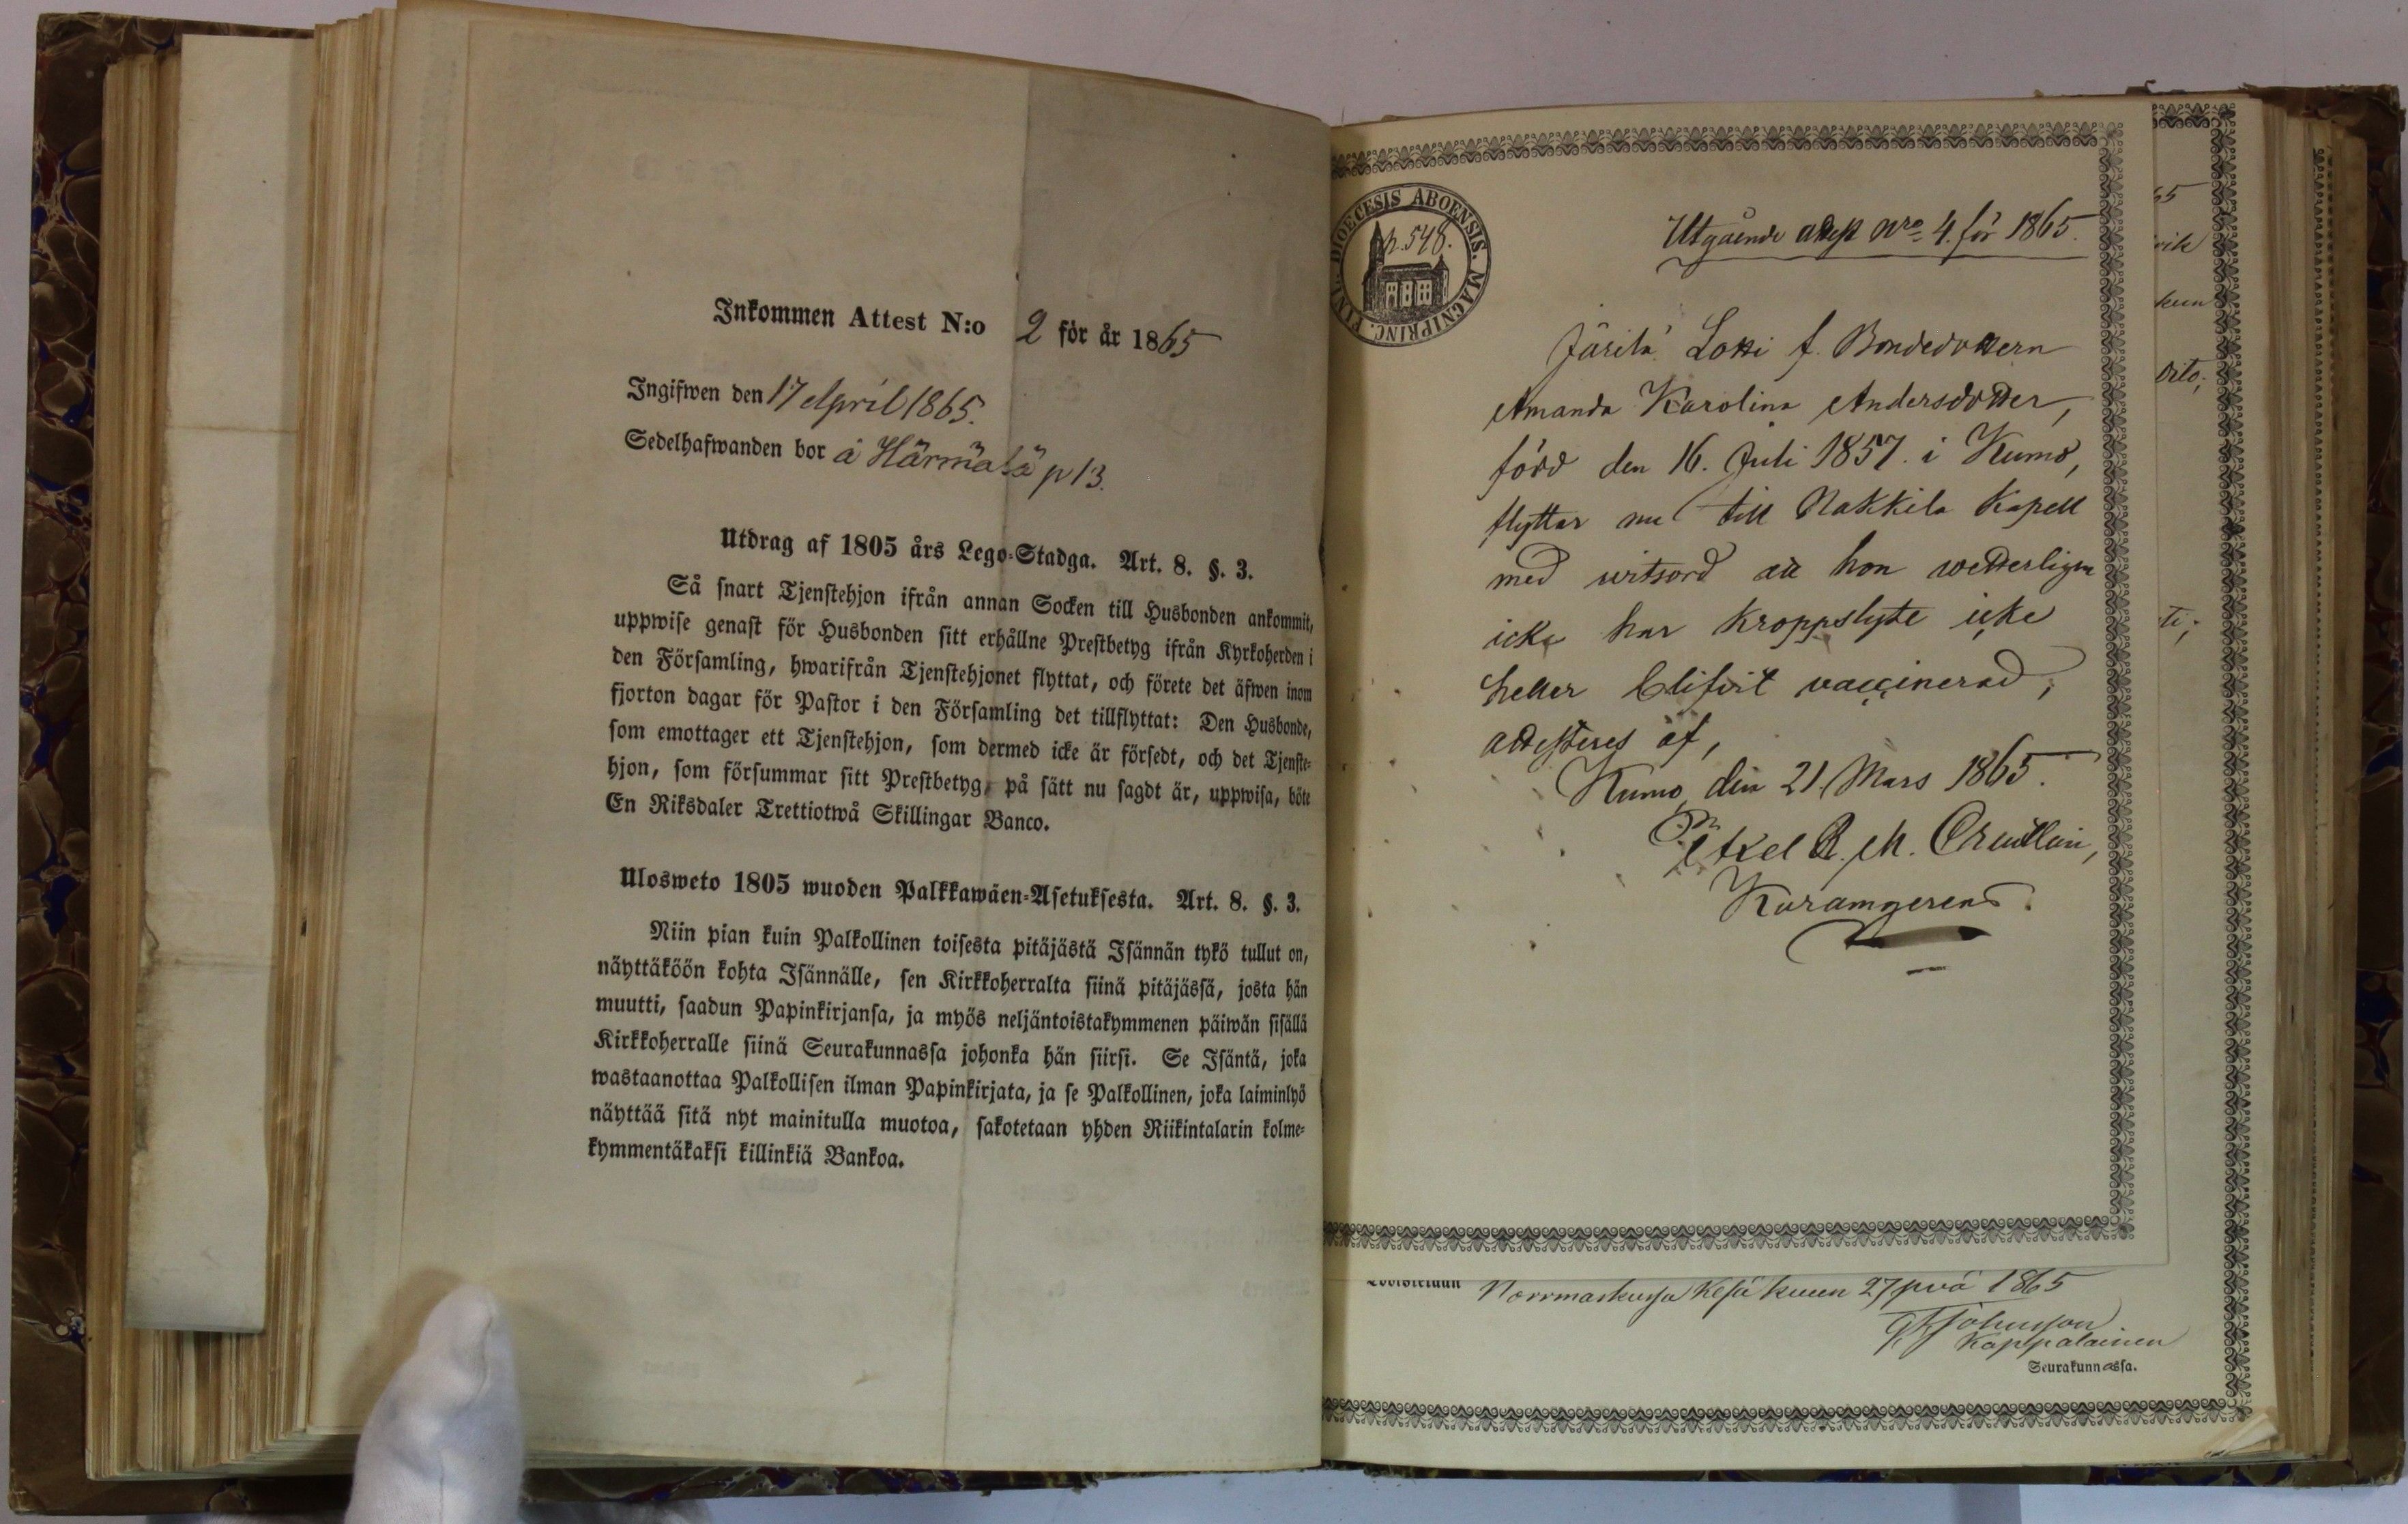 Inkommen Attest N:o 2 för år 1865
Ingifwen den 17 April 1865.
Sedelhafwanden bor å Härmälä p 13.
Utdrag af 1805 års Lego-Stadga. Art. 8. §. 3.
Så snart Tjenstehjon ifrån annan Socken till Husbonden ankommit,
uppwise genast för Husbonden sitt erhållne Prestbetyg ifrån Kyrkoherden i
den Församling, hwarifrån Tjenstehjonet flyttat, och förete det äfwen inom
fjorton dagar för Pastor i den Församling det tillflyttat: Den Husbonde,
som emottager ett Tjenstehjon, som dermed icke är försedt, och det Tjenste-
hjon, som försummar sitt Prestbetyg, på sätt nu sagdt är, uppwisa, böte
En Riksdaler Trettiotwå Skillingar Banco.
Ulosweto 1805 wuoden Palkkawäen-Asetuksesta. Art. 8. §. 3.
Niin pian kuin Palkollinen toisesta pitäjästä Isännän tykö tullut on,
näyttäköön kohta Isännälle, sen Kirkkoherralta siinä pitäjässä, josta hän
muutti, saadun Papinkirjansa, ja myös neljäntoistakymmenen päiwän sisällä
Kirkkoherralle siinä Seurakunnassa johonka hän siirsi. Se Isäntä, joka
wastaanottaa Palkollisen ilman Papinkirjata, ja se Palkollinen, joka laiminlyö
näyttää sitä nyt mainitulla muotoa, sakotetaan yhden Riikintalarin kolme-
kymmentäkaksi killinkiä Bankoa.
DIOECESIS ABOENSIS. MAGNIPRINC. FINL.
p. 548.
Utgående attest Nro 4. för 1865.
Lotti f. Bondedottern
Amanda Karolina Andersdotter,
född den 16. Juli 1857. i Kumo,
flyttar nu till Nakkila Kapell
med witsord att hon wetterligen
icke har kroppslyte icke
heller blifvit vaccinerad,
attesteres af,
Kumo, den 21 Mars 1865.
65
kuun
Norrmarkussa Kesä kuun 27 pvä 1865
Johnsson
Kappalainen
Seurakunnassa.